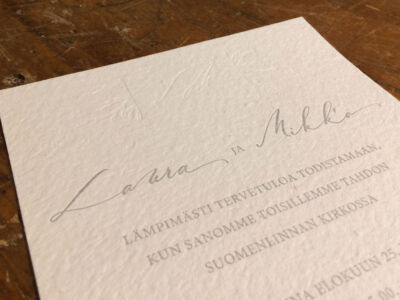 Laura ja Mikko
LÄMPIMÄSTI TERVETULOA TODISTAMAAN,
KUN SANOMME TOISILLEMME TAHDON
SUOMENLINNAN KIRKOSSA
ELOKUUN 25.